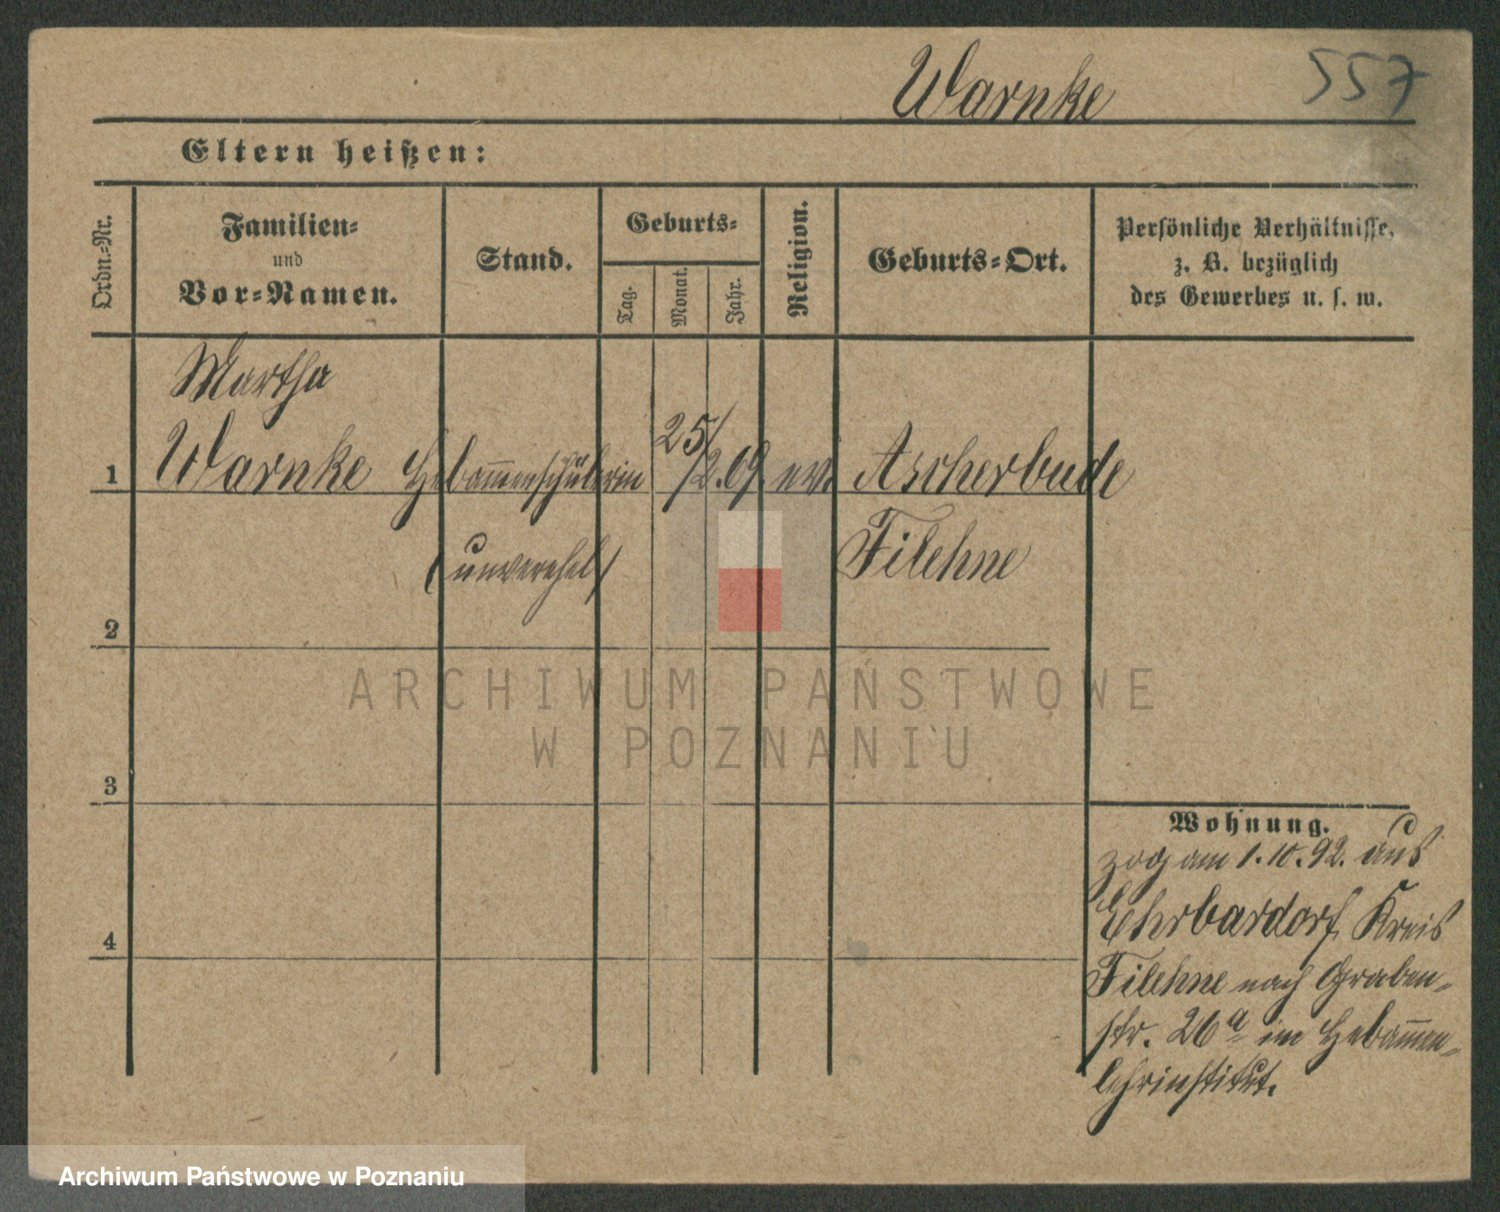 Warnke
557
Eltern heißen:
Ordn.-Nr.
Familien-
und
Vor-Namen.
Stand.
Geburts-
Tag.
Monat.
Jahr.
Religion.
Geburts-Ort.
Persönliche Verhältnisse,
z. B. bezüglich
des Gewerbes u. s. w.
Martha
1 Warnke Hebammenschülerin 25/2.69. ev. Ascherbude
(unverehel) Filehne
2
ARCHIWUM PAŃSTWOWE
W POZNANIU
3
Wohnung.
zog am 1.10.92. aus
Ehrbardorf, Kreis
4
Filehne nach Graben-
str. 26a im Hebammen-
lehrinstitut.
Archiwum Państwowe w Poznaniu